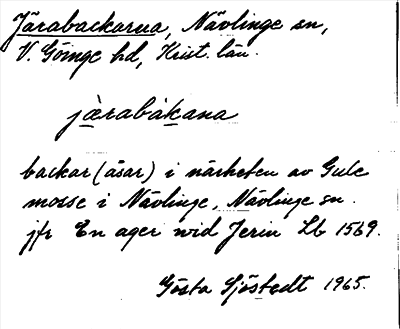 Järabackarna, Nävlinge sn,
V. Göinge hd, Krist. län.
jàrabákana
backar (åsar) i närheten av Gule
mosse i Nävlinge, Nävlinge sn.
jfr En ager wid Jerin Lb 1569.
Gösta Sjöstedt 1965.